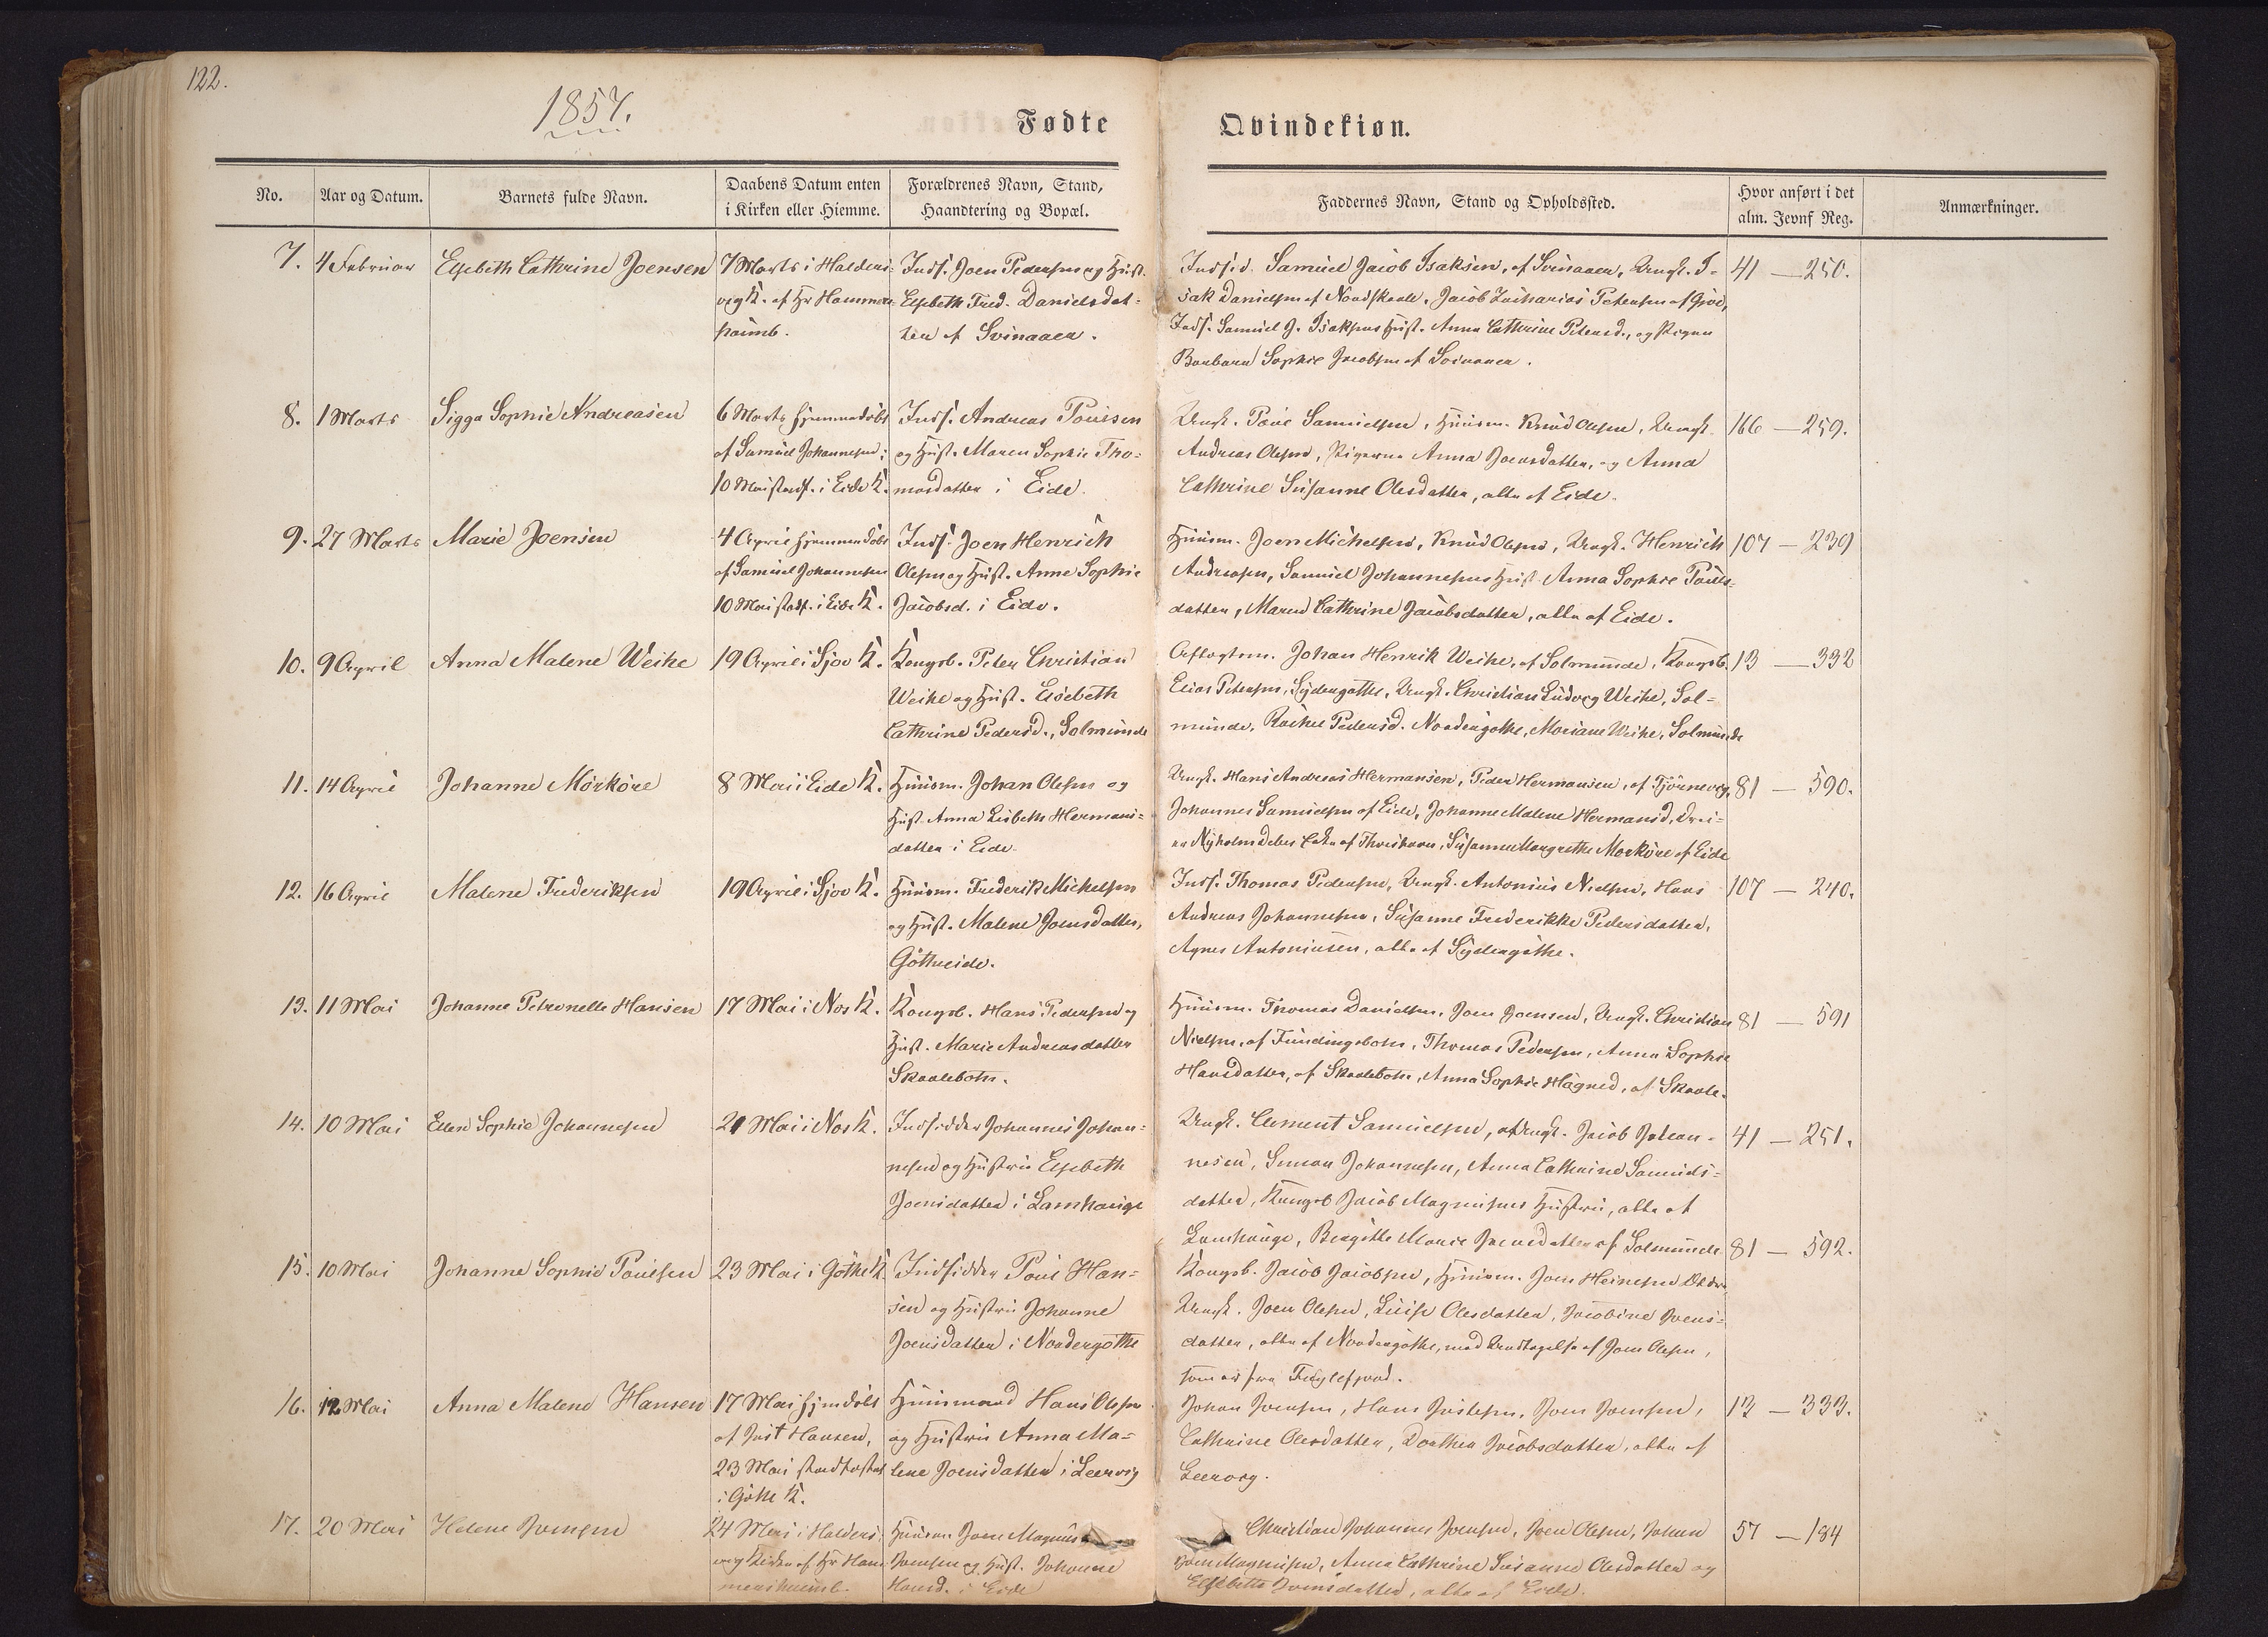 122.
1857.
Fødte
Qvindekiøn.
No.
Aar og Datum.
Barnets fulde Navn.
Daabens Datum enten
i Kirken eller Hiemme.
Forældrenes Navn, Stand,
Haandtering og Bopæl.
Faddernes Navn, Stand og Opholdssted.
Hvor anført i det
alm. Jevnf Reg.
Anmærkninger.
7. 4 Februar Elsebeth Cathrine Joensen
7 Marts i Halders-
vig K. af Hr Hammers-
haimb.
Inds. Joen Pedersen og Hust.
Elsebeth Fred. Danielsdat-
ter af Svinaaer.
Indsid. Samuel Jacob Isaksen, af Svinaaer, Ungk. I-
sak Danielsen af Nordskaale, Jacob Zacharias Petersen af
Inds. Samuel J. Isaksens Hust. Anna Cathrine Petersd., og Pigen
Barbara Sophie Jacobsen af Svinaaer.
41 — 250.
8. 1 Marts Sigga Sophie Andreasen
6 Marts hjemmedøbt
af Samuel Johannesen;
10 Mai stadf. i Eide K.
Inds. Andreas Poulsen
og Hust. Maren Sophie Tho-
masdatter i Eide.
Ungk. Poul Samuelsen, Huusm. Knud Olesen, Ungk.
Andreas Olesen, Pigerne Anna Joensdatter, og Anna
Cathrine Susanne Olesdatter, alle af Eide.
166 — 259.
9. 27 Marts Marie Joensen
4 April hjemmedøbt
af Samuel Johannesen
10 Mai stadf. i Eide K.
Inds. Joen Henrich
Olesen og Hust. Anne Sophie
Jacobsd. i Eide.
Huusm. Joen Michelsen, Knud Olesen, Ungk. Henrich
Andreasen, Samuel Johannesens Hust. Anna Sophie Pouls-
datter, Maren Cathrine Jacobsdatter, alle af Eide.
107 — 239
10. 9 April Anna Malene Weihe
19 April i Sjov K.
Kongsb. Peter Christian
Weihe og Hust. Elsebeth
Cathrine Pedersd., Solmunde
Aftægtsm. Johan Henrik Weihe, af Solmunde, Kongsb.
Elias Petersen, Sydergøthe, Ungk. Christian Ludvig Weihe, Sol-
munde, Rachel Pedersd. Nordergøthe, Mariane Weihe, Solmunde
13 — 332
11. 14 April Johanne Mørkøre
8 Mai i Eide K.
Huusm. Johan Olesen og
Hust. Anna Lisbeth Hermans-
datter i Eide.
Ungk. Hans Andreas Hermansen, Peder Hermansen, af Tjørnevig,
Johannes Samuelsen af Eide, Johanne Malene Hermansd,
Nyholm Debes af Thorshavn, Susanne Margrethe Mørkøre af Eide
81 — 590.
12. 16 April Malene Frederiksen
19 April i Sjov K.
Huusm. Frederik Michelsen
og Hust. Malene Joensdatter,
Gøtheeide.
Inds. Thomas Pedersen, Ungk. Antonius Nielsen, Hans
Andreas Johannesen, Susanne Frederikke Pedersdatter,
Agnes Antoniusen, alle af Sydergøthe.
107 — 240.
13. 11 Mai Johanne Petronelle Hansen
17 Mai i Nes K.
Kongsb. Hans Pedersen og
Hust. Marie Andreasdatter
Skaalebotn.
Huusm. Thomas Danielsen, Joen Joensen, Ungk. Christian
Nielsen, af Fundingsbotn, Thomas Pedersen, Anna Sophie
Hansdatter, af Skaalebotn, Anna Sophie Høgned, af Skaale.
81 — 591
14. 10 Mai Ellen Sophie Johannesen
21 Mai i Nes K.
Indsidder Johannes Johan-
nesen og Hustru Elsebeth
Joensdatter i Lamhauge
Ungk. Clement Samuelsen, Ungk. Jacob Johan-
nesen, Simon Johannesen, Anna Cathrine Samuels-
datter, Kongsb Jacob Magnussens Hustru, alle af
Lamhauge, Birgitte Marie Joensdatter af Solmunde
41 — 251.
15. 10 Mai Johanne Sophie Poulsen
23 Mai i Gøthe K.
Indsidder Poul Han-
sen og Hustru Johanne
Joensdatter i Nordergøthe
Kongsb. Jacob Jacobsen, Huusm. Joen Heinesen
Ungk. Joen Olesen, Luise Olesdatter, Jacobine Joens-
datter, alle af Nordergøthe, med Undtagelse af Joen Olesen,
som er fra Fuglefjord.
81 — 592.
16. 12 Mai Anna Malene Hansen
17 Mai hjemdøbt
af Just Hansen,
23 Mai stadfæstet
i Gøthe K.
Huusmand Hans Olesen
og Hustru Anna Ma-
lene Joensdatter i Leervig
Johan Joensen, Hans Justesen, Joen Joensen,
Cathrine Olesdatter, Dorthea Jacobsdatter, alle af
Leervig.
13 — 333.
17. 20 Mai Helene Joensen
24 Mai i Halders-
vig Kirke af Hr Ham-
mershaimb.
Huusm. Joen Magnus
Joensen og Hust. Johanne
Hansd. i Eide
Christian Johannes Joensen, Joen Olesen, Johan
Joen Magnussen, Anna Cathrine Susanne Olesdatter og
Elsebeth Joensdatter, alle af Eide.
57 — 184